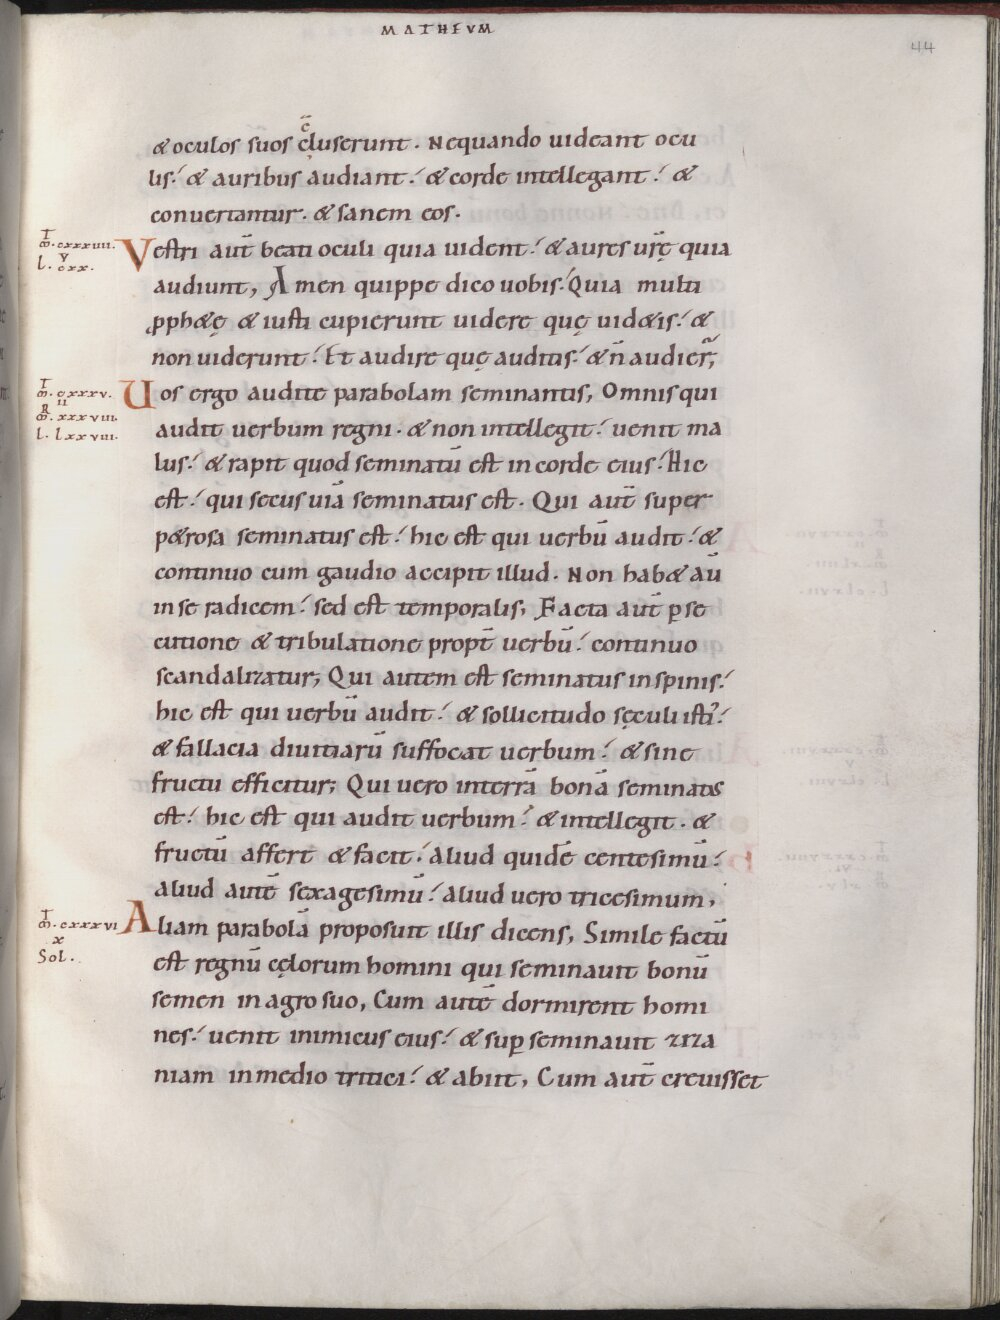 MATHEVM
44
& oculos suos c̄luserunt. Nequando uideant ocu
lis: & auribus audiant: & corde intellegant: &
conuertantur. & sanem eos.
T
m̄. cxxxiiii.
V
l. cxx.
Vestri aut̄ beati oculi quia uident: & aures urę̄ quia
audiunt, Amen quippe dico uobis: Quia multi
ꝓph&ę & iusti cupierunt uidere quę uid&is: &
non uiderunt: Et audire quę auditis: & n̄ audier̄;
T
m̄. cxxxv.
II
R
m̄. xxxviii.
l. lxxviii.
Uos ergo audite parabolam seminantis, Omnis qui
audit uerbum regni. & non intellegit: uenit ma
lus: & rapit quod seminatū est in corde eius: Hic
est: qui secus uiā seminatus est. Qui aut̄ super
p&rosa seminatus est: hic est qui uerbū audit: &
continuo cum gaudio accipit illud. Non hab& aū
in se radicem: sed est temporalis, Facta aut̄ ꝑse
cutione & tribulatione propt̄ uerbū: continuo
scandalizatur; Qui autem est seminatus in spinis:
hic est qui uerbū audit: & sollicitudo sęculi isti:
& fallacia diuitiarū suffocat uerbum: & sine
fructu efficitur; Qui uero in terrā bonā seminatus
est: hic est qui audit uerbum: & intellegit. &
fructū affert & facit: Aliud quidē centesimū:
aliud autē sexagesimū: aliud uero tricesimum,
T
m̄. cxxxvi
x
Sol.
Aliam parabolā proposuit illis dicens, Simile factū
est regnū cęlorum homini qui seminauit bonū
semen in agro suo, Cum autē dormirent homi
nes: uenit inimicus eius: & suꝑseminauit ziza
niam in medio tritici: & abiit, Cum aut̄ creuisset